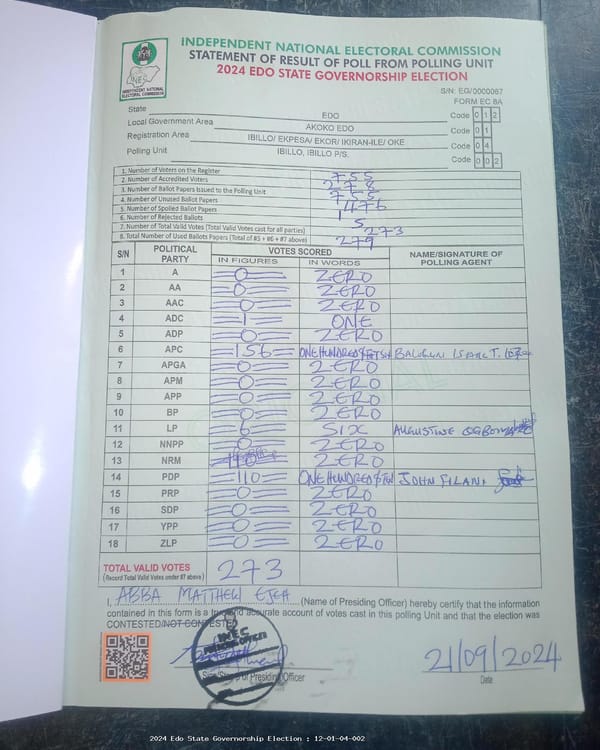 INDEPENDENT NATIONAL ELECTORAL COMMISSION
STATEMENT OF RESULT OF POLL FROM POLLING UNIT
2024 EDO STATE GOVERNORSHIP ELECTION
INEC
INDEPENDENT NATIONAL ELECTORAL COMMISSION
S/N: EG/0000067
FORM EC 8A
State EDO Code 0 1 2
Local Government Area AKOKO EDO Code 0 1
Registration Area IBILLO/ EKPESA/ EKOR/ IKIRAN-ILE/ OKE Code 0 4
Polling Unit IBILLO, IBILLO P/S. Code 0 0 2
1. Number of Voters on the Register 755
2. Number of Accredited Voters 278
3. Number of Ballot Papers Issued to the Polling Unit 755
4. Number of Unused Ballot Papers 476
5. Number of Spoiled Ballot Papers 1
6. Number of Rejected Ballots 5
7. Number of Total Valid Votes (Total Valid Votes cast for all parties) 273
8. Total Number of Used Ballots Papers (Total of #5 + #6 + #7 above) 279
S/N POLITICAL PARTY VOTES SCORED NAME/SIGNATURE OF POLLING AGENT
IN FIGURES IN WORDS
1 A 0 ZERO
2 AA 0 ZERO
3 AAC 0 ZERO
4 ADC 1 ONE
5 ADP 0 ZERO
6 APC 156 ONE HUNDRED & BALOGUN ISAAC T.
7 APGA 0 ZERO
8 APM 0 ZERO
9 APP 0 ZERO
10 BP 0 ZERO
11 LP 6 SIX AUGUSTINE
12 NNPP 0 ZERO
13 NRM ZERO
14 PDP 110 ONE HUNDRED & TEN JOHN FILANI
15 PRP 0 ZERO
16 SDP 0 ZERO
17 YPP 0 ZERO
18 ZLP 0 ZERO
TOTAL VALID VOTES 273
(Record Total Valid Votes under #7 above)
I, ABBA MATTHEW EJEH (Name of Presiding Officer) hereby certify that the information
contained in this form is a true and accurate account of votes cast in this polling Unit and that the election was
CONTESTED/NOT CONTESTED
INEC
PRESIDING OFFICER
Sign/Stamp of Presiding Officer
21/09/2024
Date
2024 Edo State Governorship Election : 12-01-04-002